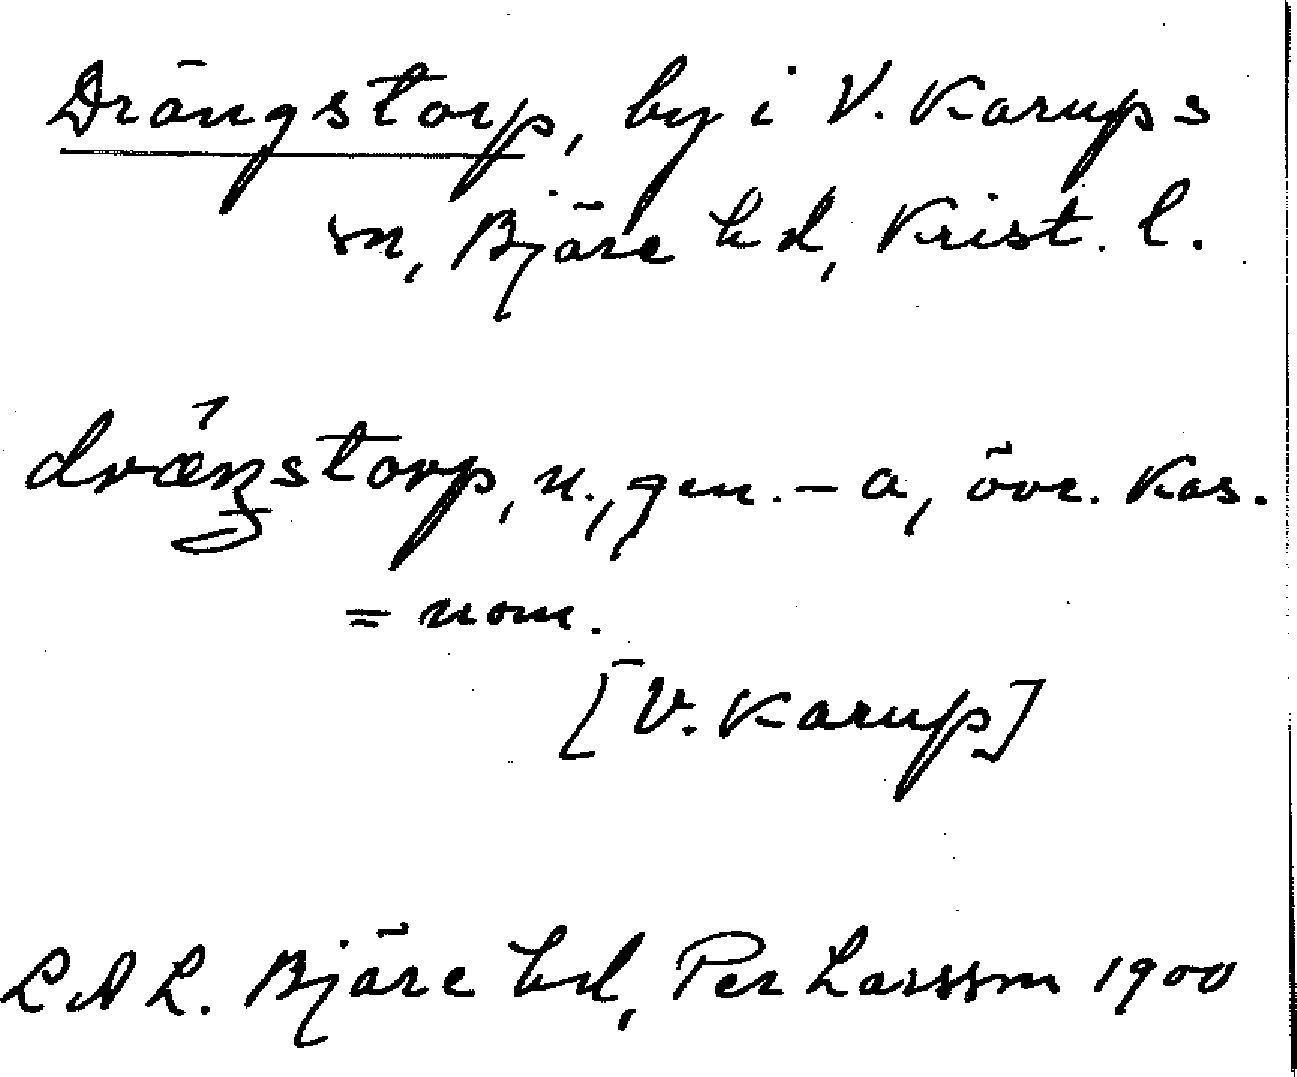 Drängstorp, by i V. Karups
sn, Bjäre hd, Krist. l.
dræŋstorp, n., gen. - a, övr. kas.
= nom.
[V. Karup]
LAL. Bjäre hd, Per Larsson 1900